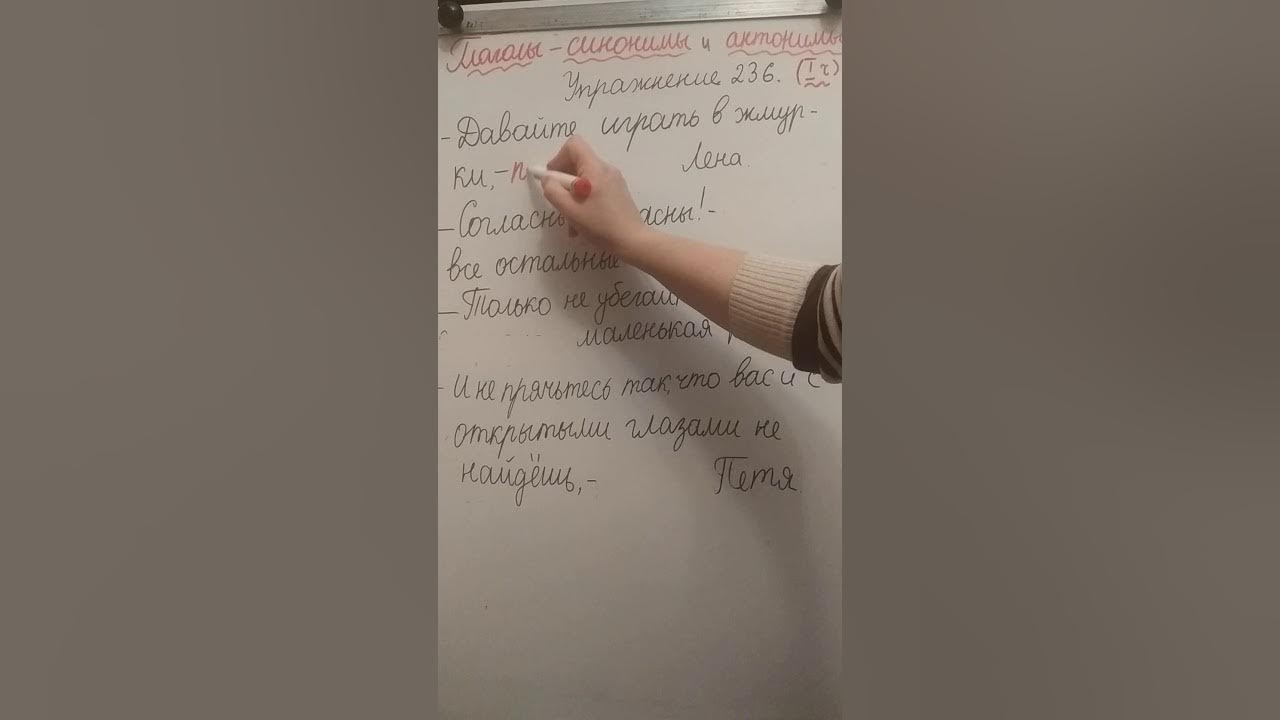 Глаголы - синонимы и антонимы
Упражнение 236. (I ч)
- Давайте играть в жмур-
ки, - п Лена.
все остальные
- Только не
маленькая
- И не прячьтесь так, что вас и с
открытыми глазами не
найдёшь, - Петя.